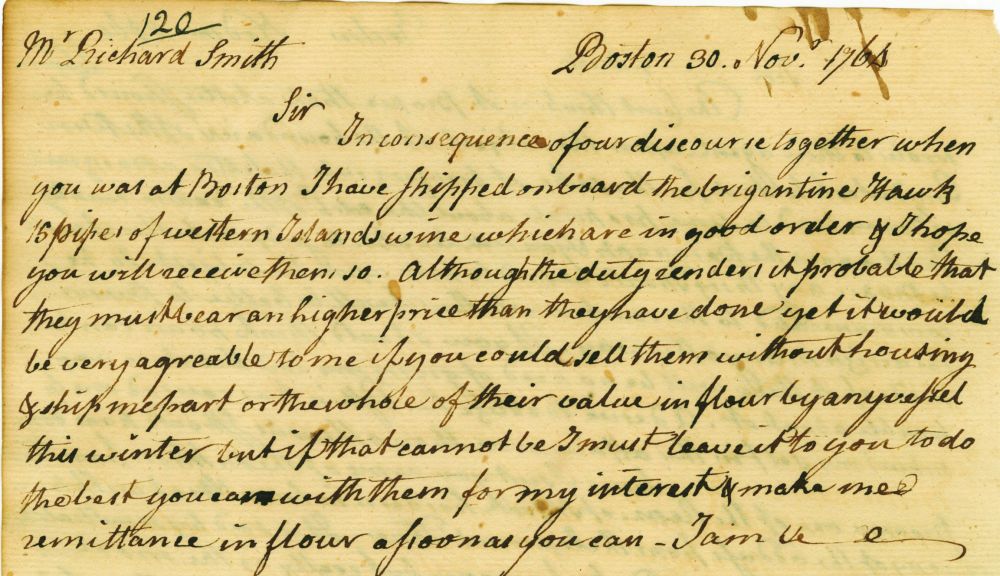 120
Mr Richard Smith Boston 30. Novr. 1764
Sir
In consequence of our discourse together when
you was at Boston I have shipped onboard the brigantine Hawk
15 pipes of western Islands wine which are in good order & I hope
you will receive them so. Although the duty renders it probable that
they must bear an higher price than they have done yet it would
be very agreable to me if you could sell them without housing
& ship me part or the whole of their value in flour by any vessel
this winter but if that cannot be I must leave it to you to do
the best you can with them for my interest & make me
remittance in flour as soon as you can - I am &c